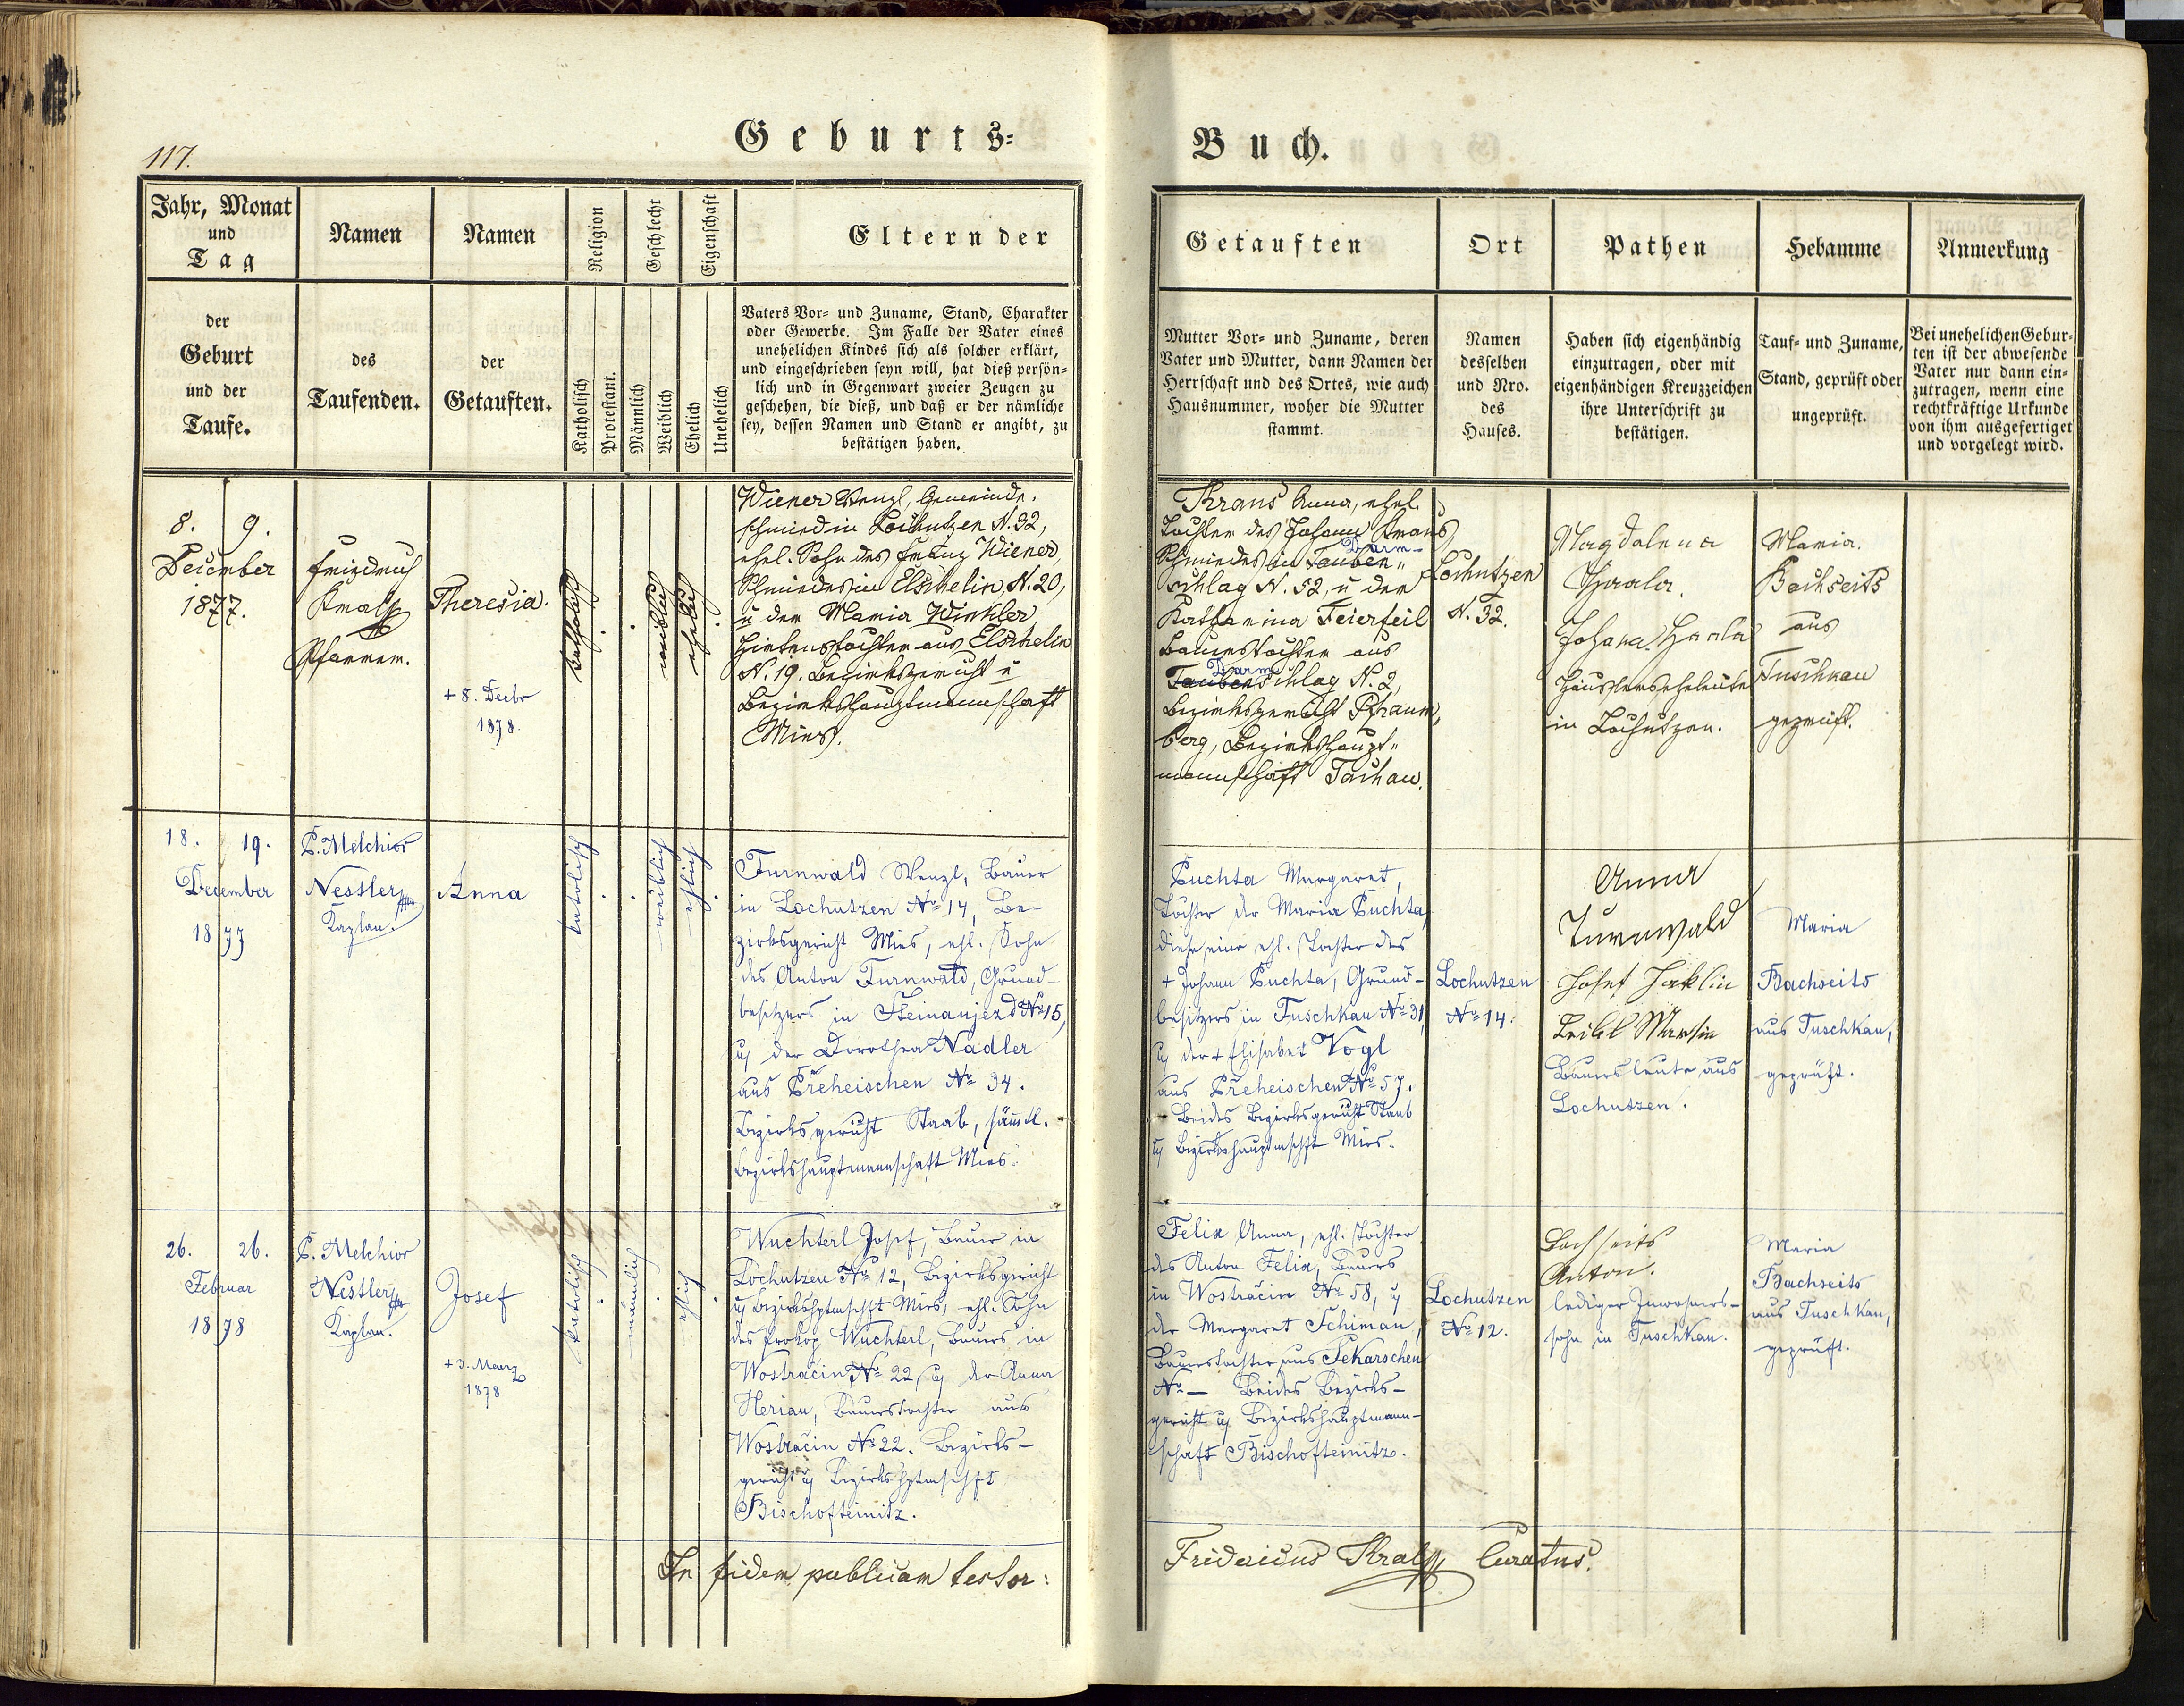 117.
Geburts=
Buch.
Jahr, Monat
und
Tag
Namen
Namen
Religion
Geschlecht
Eigenschaft
Eltern der
der
Geburt
und der
Taufe.
des
Taufenden.
der
Getauften.
Katholisch
Protestant.
Männlich
Weiblich
Ehelich
Unehelich
Vaters Vor= und Zuname, Stand, Charakter
oder Gewerbe. Im Falle der Vater eines
unehelichen Kindes sich als solcher erklärt,
und eingeschrieben seyn will, hat dieß persön=
lich und in Gegenwart zweier Zeugen zu
geschehen, die dieß, und daß er der nämliche
sey, dessen Namen und Stand er angibt, zu
bestätigen haben.
Getauften
Ort
Pathen
Hebamme
Anmerkung
Mutter Vor= und Zuname, deren
Vater und Mutter, dann Namen der
Herrschaft und des Ortes, wie auch
Hausnummer, woher die Mutter
stammt.
Namen
desselben
und Nro.
des
Hauses.
Haben sich eigenhändig
einzutragen, oder mit
eigenhändigen Kreuzzeichen
ihre Unterschrift zu
bestätigen.
Tauf= und Zuname,
Stand, geprüft oder
ungeprüft.
Bei unehelichen Gebur=
ten ist der abwesende
Vater nur dann ein=
zutragen, wenn eine
rechtkräftige Urkunde
von ihm ausgefertiget
und vorgelegt wird.
8. 9.
December
1877.
Friedrich
Kral
Pfarrer.
Theresia.
+ 8. Decbr
1878.
katholisch
weiblich
ehelich
Wiener Wenzl, Gemeinde-
schmied in Lochutzen N. 32,
ehel. Sohn des Franz Wiener,
Schmiedes in Elschelin, N. 20,
u der Maria Winkler
Hirtenstochter aus Elschelin
N. 19. Bezirksgericht u
Bezirkshauptmannschaft
Mies.
Kraus Anna, ehel.
Tochter des Johann Kraus
Schmiedes in Tauben„
Darm-
schlag N. 52, u der
Katharina Feierfeil
Bauerstochter aus
Darm
Taubenschlag N. 2,
Bezirksgericht Pfraum„
berg, Bezirkshaupt„
mannschaft Tachau.
Lochutzen
N. 32.
Magdalena
Haala.
Johann Haala
Häuslerseheleute
in Lochutzen.
Maria
Bachseits
aus
Tuschkau
geprüft.
18. 19.
December
1877
P. Melchior
Nestler
Kaplan.
Anna
katolisch
weiblich
ehlich
Turnwald Wenzl, Bauer
in Lochutzen No 14, Be-
zirksgericht Mies, ehl. Sohn
des Anton Turnwald, Grund-
besitzers in Steinaujezd No 15,
u der Dorothea Nadler
aus Přeheischen No 34.
Bezirksgericht Staab, sämtl.
Bezirkshauptmannschaft Mies.
Puchta Margaret,
Tochter der Maria Puchta,
diese eine ehl. Tochter des
+ Johann Puchta, Grund-
besitzers in Tuschkau No 31,
u der + Elisabet Vogl
aus Přeheischen No 57.
Beides Bezirksgericht Staab
u Bezirkshauptmschft Mies.
Lochutzen
No 14.
Anna
Turnwald
Josef Jaklin
Martin
Bauersleute aus
Lochutzen.
Maria
Bachseits
aus Tuschkau,
geprüft.
26. 26.
Februar
1878
P. Melchior
Nestler
Kaplan.
Josef
+ 3. Maerz
1878
katolisch
männlich
ehlich
Wuchterl Josef, Bauer in
Lochutzen No 12, Bezirksgericht
u Bezirkshptmschft Mies, ehl. Sohn
des Prokop Wuchterl, Bauers in
Wostračin No 22, u der Anna
Herian, Bauerstochter aus
Wostračin No 22. Bezirks-
gericht u Bezirkshptmschft
Bischofteinitz.
Felix Anna, ehl. Tochter
des Anton Felix, Bauers
in Wostračin No 58, u
der Margaret Schiman,
Bauerstochter aus Sekarschen
No — Beides Bezirks-
gericht u Bezirkshauptmann-
schaft Bischofteinitz.
Lochutzen
No 12.
Bachseits
Anton.
lediger Inwohners-
sohn in Tuschkau.
Maria
Bachseits
aus Tuschkau,
geprüft.
In fidem publicam testor:
Fridericus Kral Curatus.